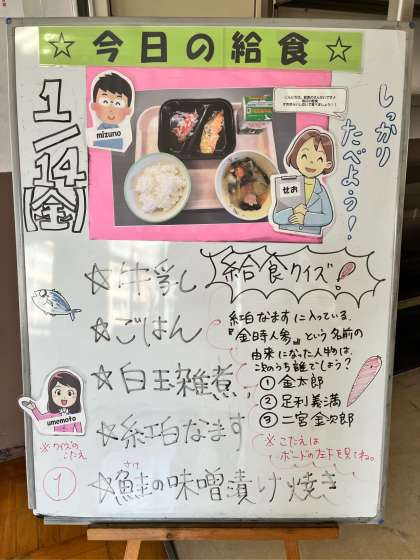 ☆今日の給食☆
1/14【金】
mizuno
せお
しっかり
たべよう!
☆牛乳
☆ごはん
☆白玉雑煮
☆紅白なます
☆鮭の味噌漬け焼き
さけ
給食クイズ!
紅白なますに入っている、
『金時人参』という名前の
由来になった人物は、
次のうち誰でしょう?
①金太郎
②足利義満
③二宮金次郎
※こたえは
ボードの左下を見てね。
umemoto
※クイズの
こたえ
①